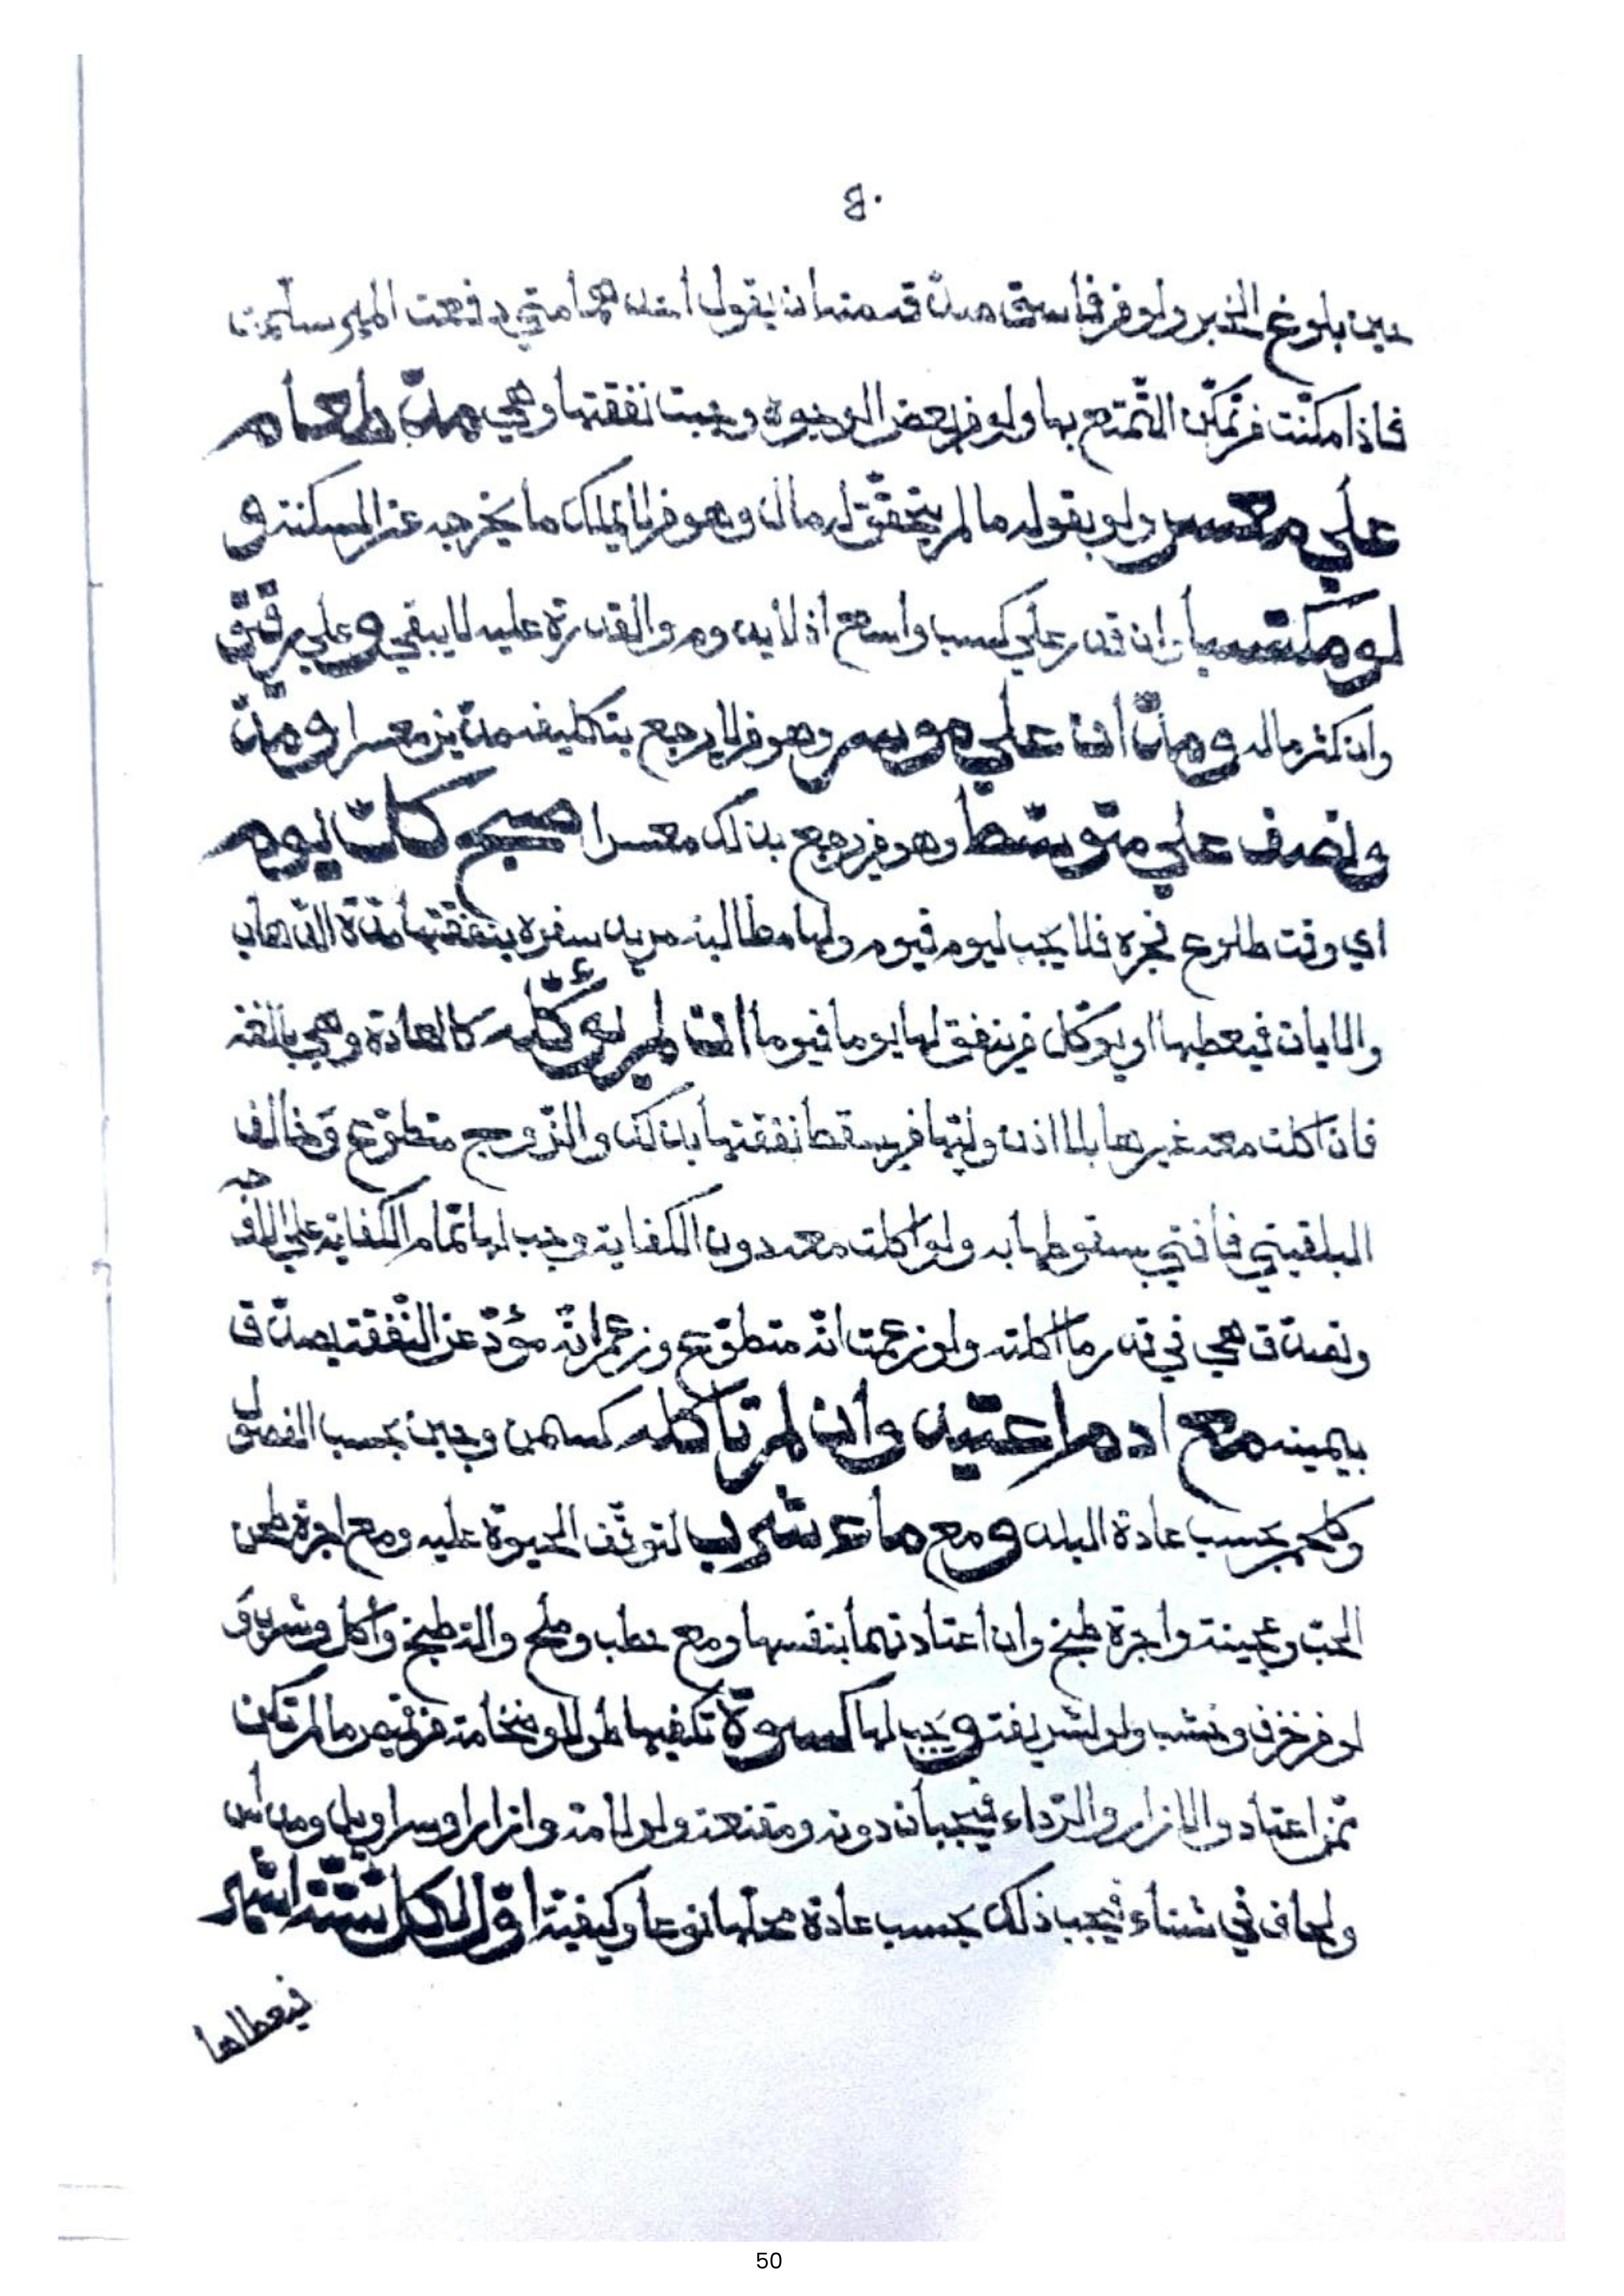 ٥٠
حين بلوغ الخبر ولو فرفاسق صدّقه منها ان يقول أحدهما متي دفعت المهر سلّمت
فاذا مكنّت فرتمكّن التّمتع بها ولو فربعض الوجوه وجبت نفقتها وهي مدّ طعام
علي معسر ولو بقوله ما لم يتحقّق له مال وهو فرلا يملك ما يخرجه عن المسكنة و
لو مكتسبا وان قدر علي كسب واسع اذ لا يدوم والقدرة عليه لا يبقي و علي رقيق
وان كثر ماله و مدّ ان علي موسر وهو فرلا يرجع بتكليفه مدّين معسرا و مدّ
و نصف علي متوسّط وهو فريرجع بذلك معسرا صبح كلّ يوم
اي وقت طلوع فجره فلا يجب ليوم فيوم ولها مطالبة مريد سفره بنفقتها مدّة الذّهاب
والاياب فيعطيها او يوكل فرينفق لها يوما فيوما ان لم تؤكله كالعادة وهي بالغة
فان اكلت معه غيرها بلا اذن وليّها فريسقط نفقتها بذلك والزّوج متطوّع وخالف
البلقيني فافتي بسقوطها به ولو اكلت معه دون الكفاية وجب لها تمام الكفاية علي الاوجه
وتصدّق هي في قدر ما اكلته ولو زعمت انّه متطوّع وزعم انّه مؤدّ عن النّفقة يصدّق
بيمينه مع ادم اعتيد وان لم تأكله كسمن وجبن بحسب الفصول
وكلحم بحسب عادة البلد و مع ماء شرب لتوقّف الحيوة عليه ومع اجرة طحن
الحبّ وعجينة واجرة طبخ وان اعتادتهما بنفسها ومع حطب وملح والة طبخ وأكل وشرب و
لو فرخزف وخشب ولو لشريفة و يجب لها كسوة تكفيها طولا وضخامة فرقميص ما لم تكن
ممّن اعتاد والازار والرّداء فيجبان دونه ومقنعة ولو لامة وازار او سراويل ومداس
ولحاف في شتاء فيجب ذلك بحسب عادة محلها نوعا وكيفية اوّل كل ستّة اشهر
فيعطاها
50